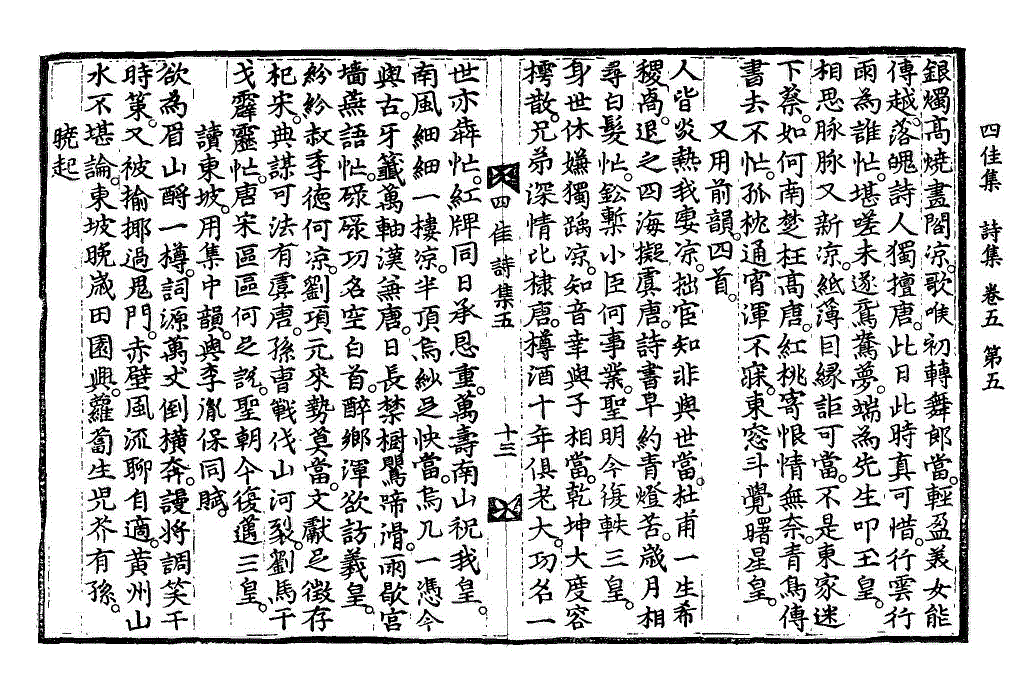 四佳集　詩集　卷五　第五
銀燭高燒畫閣涼歌喉初轉舞郎當輕盈美女能
傳越落魄詩人獨擅唐此日此時真可惜行雲行
雨為誰忙堪嗟未遂鴛鴦夢端為先生叩玉皇
相思脉脉又新涼紙薄因緣詎可當不是東家迷
下蔡如何南楚枉高唐紅桃寄恨情無奈青鳥傳
書去不忙孤枕通宵渾不寐東窓斗覺曙星皇
又用前韻四首
人皆炎熱我要涼拙宦知非與世當杜甫一生希
稷卨退之四海擬虞唐詩書早約青燈苦歲月相
尋白髮忙鈆槧小臣何事業聖明今復軼三皇
身世休嫌獨踽涼知音幸與子相當乾坤大度容
樗散兄弟深情比棣唐樽酒十年俱老大功名一
四佳詩集五　十三
世亦犇忙紅牌同日承恩重萬壽南山祝我皇
南風細細一樓涼半頂烏紗足怏當烏几一憑今
與古牙籤萬軸漢兼唐日長禁樹鸎啼滑雨歇宮
墻燕語忙碌碌功名空白首醉鄉渾欲訪羲皇
紛紛叔季德何涼劉項元來勢莫當文獻足徵存
杞宋典謨可法有虞唐孫曺戰伐山河裂劉馬干
戈霹靂忙唐宋區區何足說聖朝今復邁三皇
讀東坡用集中韻與李胤保同賦
欲為眉山酹一樽詞源萬丈倒橫奔謾將調笑干
時策又被揄揶過鬼門赤壁風流聊自適黃州山
水不堪論東坡晚歲田園興蘿蔔生児芥有孫
曉起